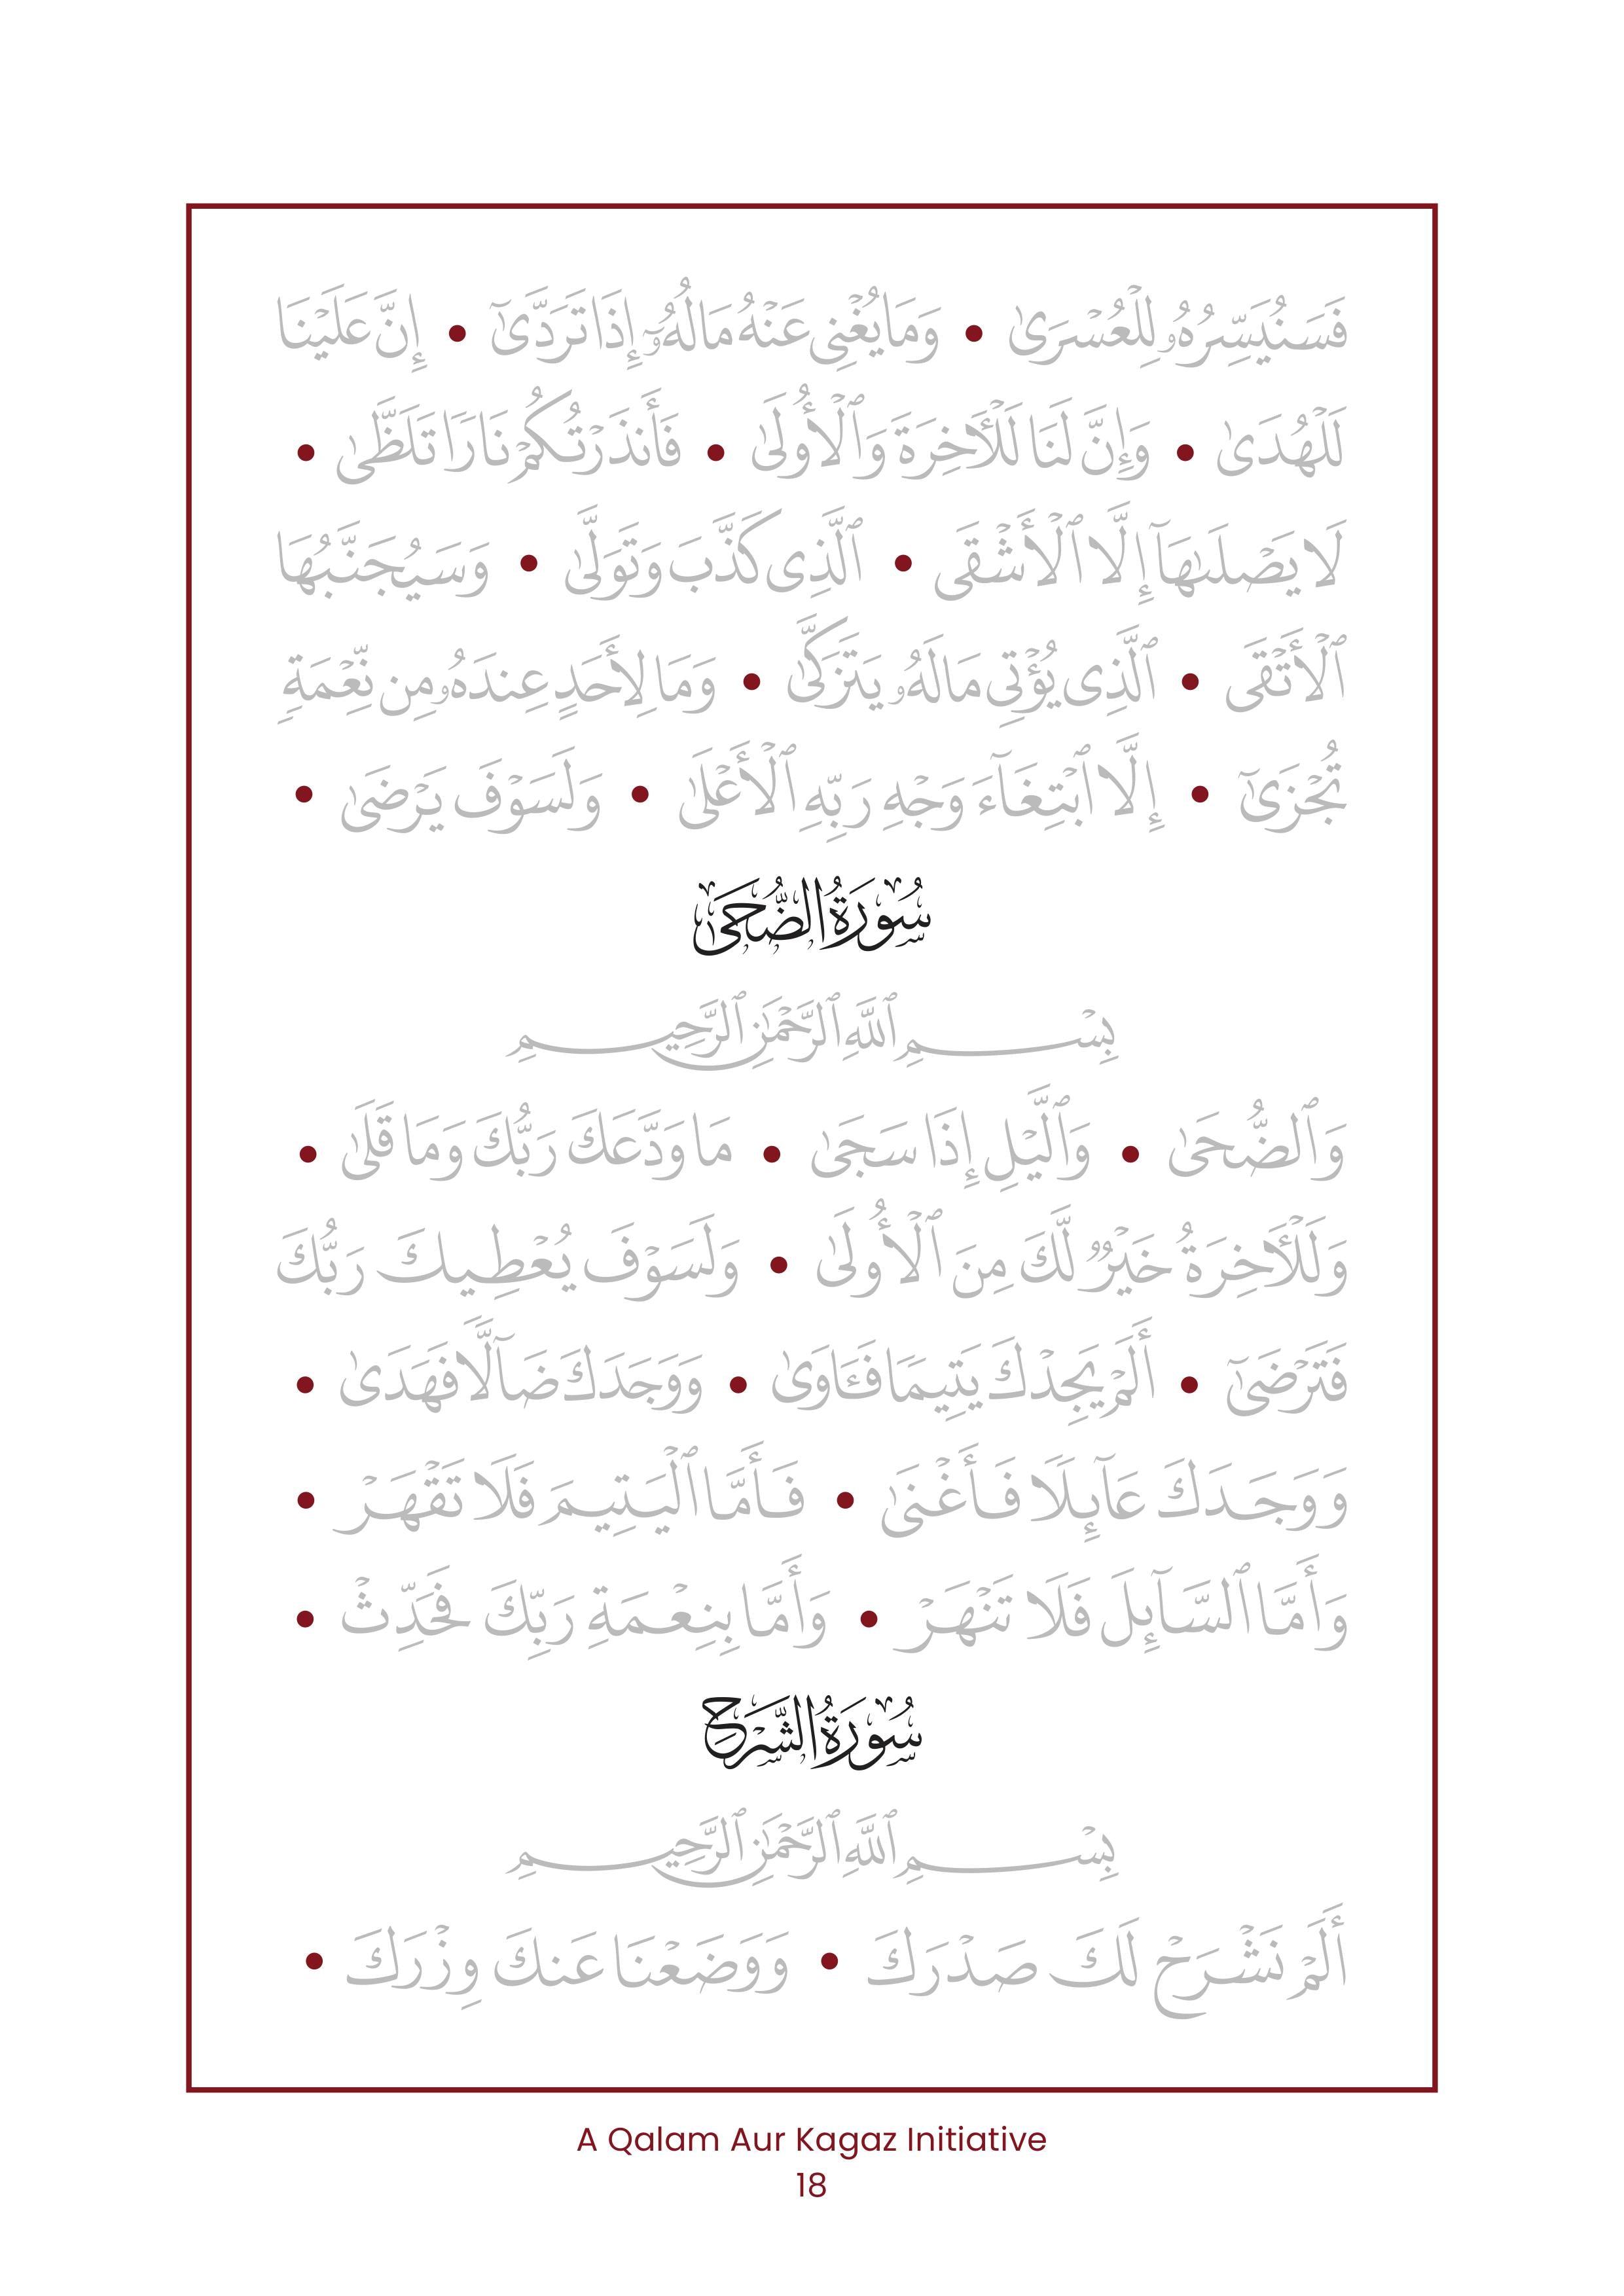 فَسَنُيَسِّرُهُۥ لِلْعُسْرَىٰ • وَمَا يُغْنِى عَنْهُ مَالُهُۥٓ إِذَا تَرَدَّىٰٓ • إِنَّ عَلَيْنَا
لَلْهُدَىٰ • وَإِنَّ لَنَا لَلْـَٔاخِرَةَ وَٱلْأُولَىٰ • فَأَنذَرْتُكُمْ نَارًا تَلَظَّىٰ •
لَا يَصْلَىٰهَآ إِلَّا ٱلْأَشْقَى • ٱلَّذِى كَذَّبَ وَتَوَلَّىٰ • وَسَيُجَنَّبُهَا
ٱلْأَتْقَى • ٱلَّذِى يُؤْتِى مَالَهُۥ يَتَزَكَّىٰ • وَمَا لِأَحَدٍ عِندَهُۥ مِن نِّعْمَةٍ
تُجْزَىٰٓ • إِلَّا ٱبْتِغَآءَ وَجْهِ رَبِّهِ ٱلْأَعْلَىٰ • وَلَسَوْفَ يَرْضَىٰ •
سُوْرَةُ الضُّحَىٰ
بِسْمِ ٱللَّهِ ٱلرَّحْمَٰنِ ٱلرَّحِيمِ
وَٱلضُّحَىٰ • وَٱلَّيْلِ إِذَا سَجَىٰ • مَا وَدَّعَكَ رَبُّكَ وَمَا قَلَىٰ •
وَلَلْـَٔاخِرَةُ خَيْرٌ لَّكَ مِنَ ٱلْأُولَىٰ • وَلَسَوْفَ يُعْطِيكَ رَبُّكَ
فَتَرْضَىٰٓ • أَلَمْ يَجِدْكَ يَتِيمًا فَـَٔاوَىٰ • وَوَجَدَكَ ضَآلًّا فَهَدَىٰ •
وَوَجَدَكَ عَآئِلًا فَأَغْنَىٰ • فَأَمَّا ٱلْيَتِيمَ فَلَا تَقْهَرْ •
وَأَمَّا ٱلسَّآئِلَ فَلَا تَنْهَرْ • وَأَمَّا بِنِعْمَةِ رَبِّكَ فَحَدِّثْ •
سُوْرَةُ الشَّرْحِ
بِسْمِ ٱللَّهِ ٱلرَّحْمَٰنِ ٱلرَّحِيمِ
أَلَمْ نَشْرَحْ لَكَ صَدْرَكَ • وَوَضَعْنَا عَنكَ وِزْرَكَ •
A Qalam Aur Kagaz Initiative
18